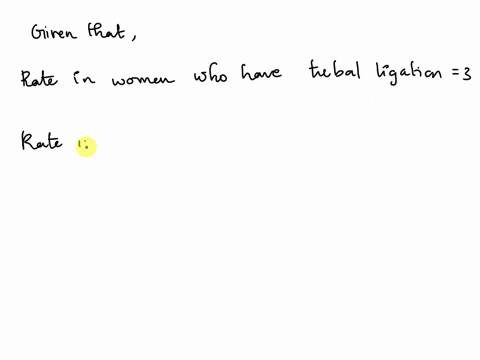 Given that,
Rate in women who have tubal ligation = 3
Rate i